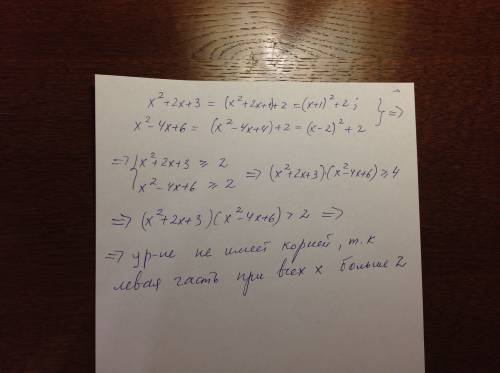 x²+2x+3 = (x²+2x+1)+2 = (x+1)²+2;
x²-4x+6 = (x²-4x+4)+2 = (x-2)²+2 } =>
=> { x²+2x+3 ≥ 2
x²-4x+6 ≥ 2 => (x²+2x+3)(x²-4x+6) ≥ 4
=> (x²+2x+3)(x²-4x+6) > 2 =>
=> ур-ие не имеет корней, т.к
левая часть при всех x больше 2